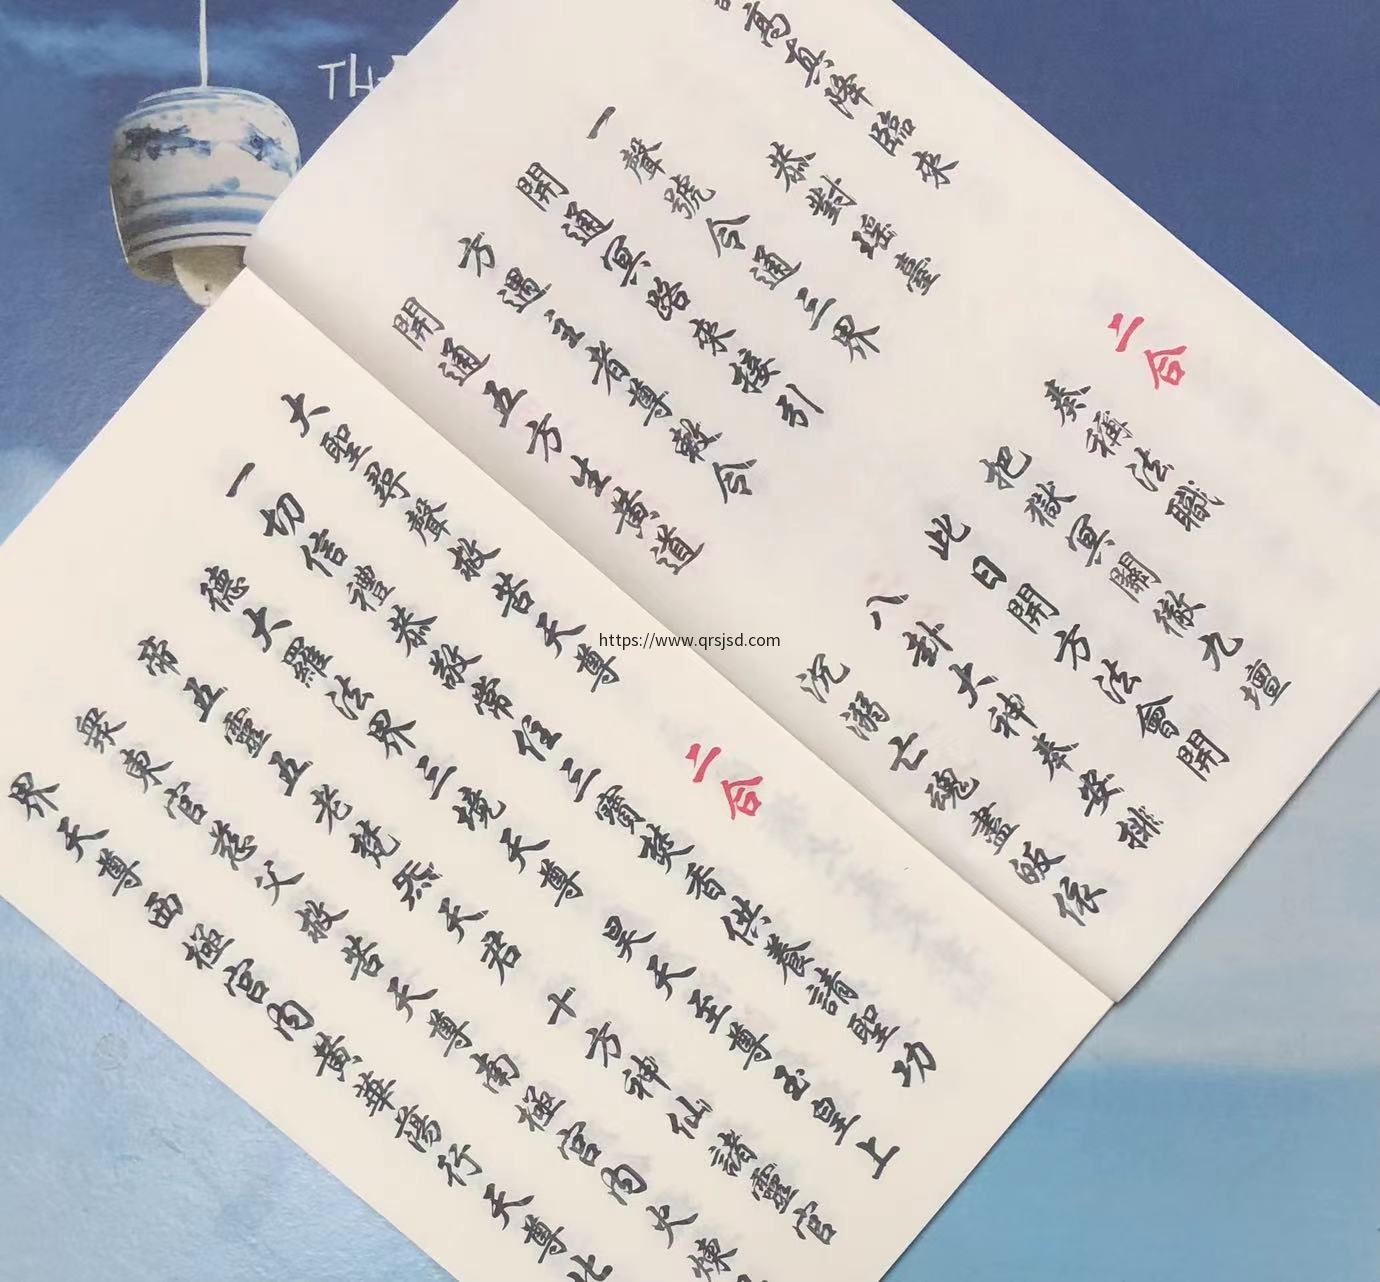 高真降臨來 二合
恭對瑤臺 奏稱法職
一聲號令通三界 把獄冥關徹九壇
開通冥路來接引 此日開方法會開
方遇主者尊敕令 八卦大神奉安排
開通五方生黃道 沉溺亡魂盡皈依
大聖尋聲救苦天尊 二合
一切信禮恭敬常住三寶焚香供養請聖功
德大羅法界三境天尊 昊天至尊玉皇上
帝五靈五老梵炁天君 十方神仙諸靈官
眾東宮慈父救苦天尊南極宮內火煉
界天尊西極宮內黃華蕩行天尊北
https://www.qrsjsd.com